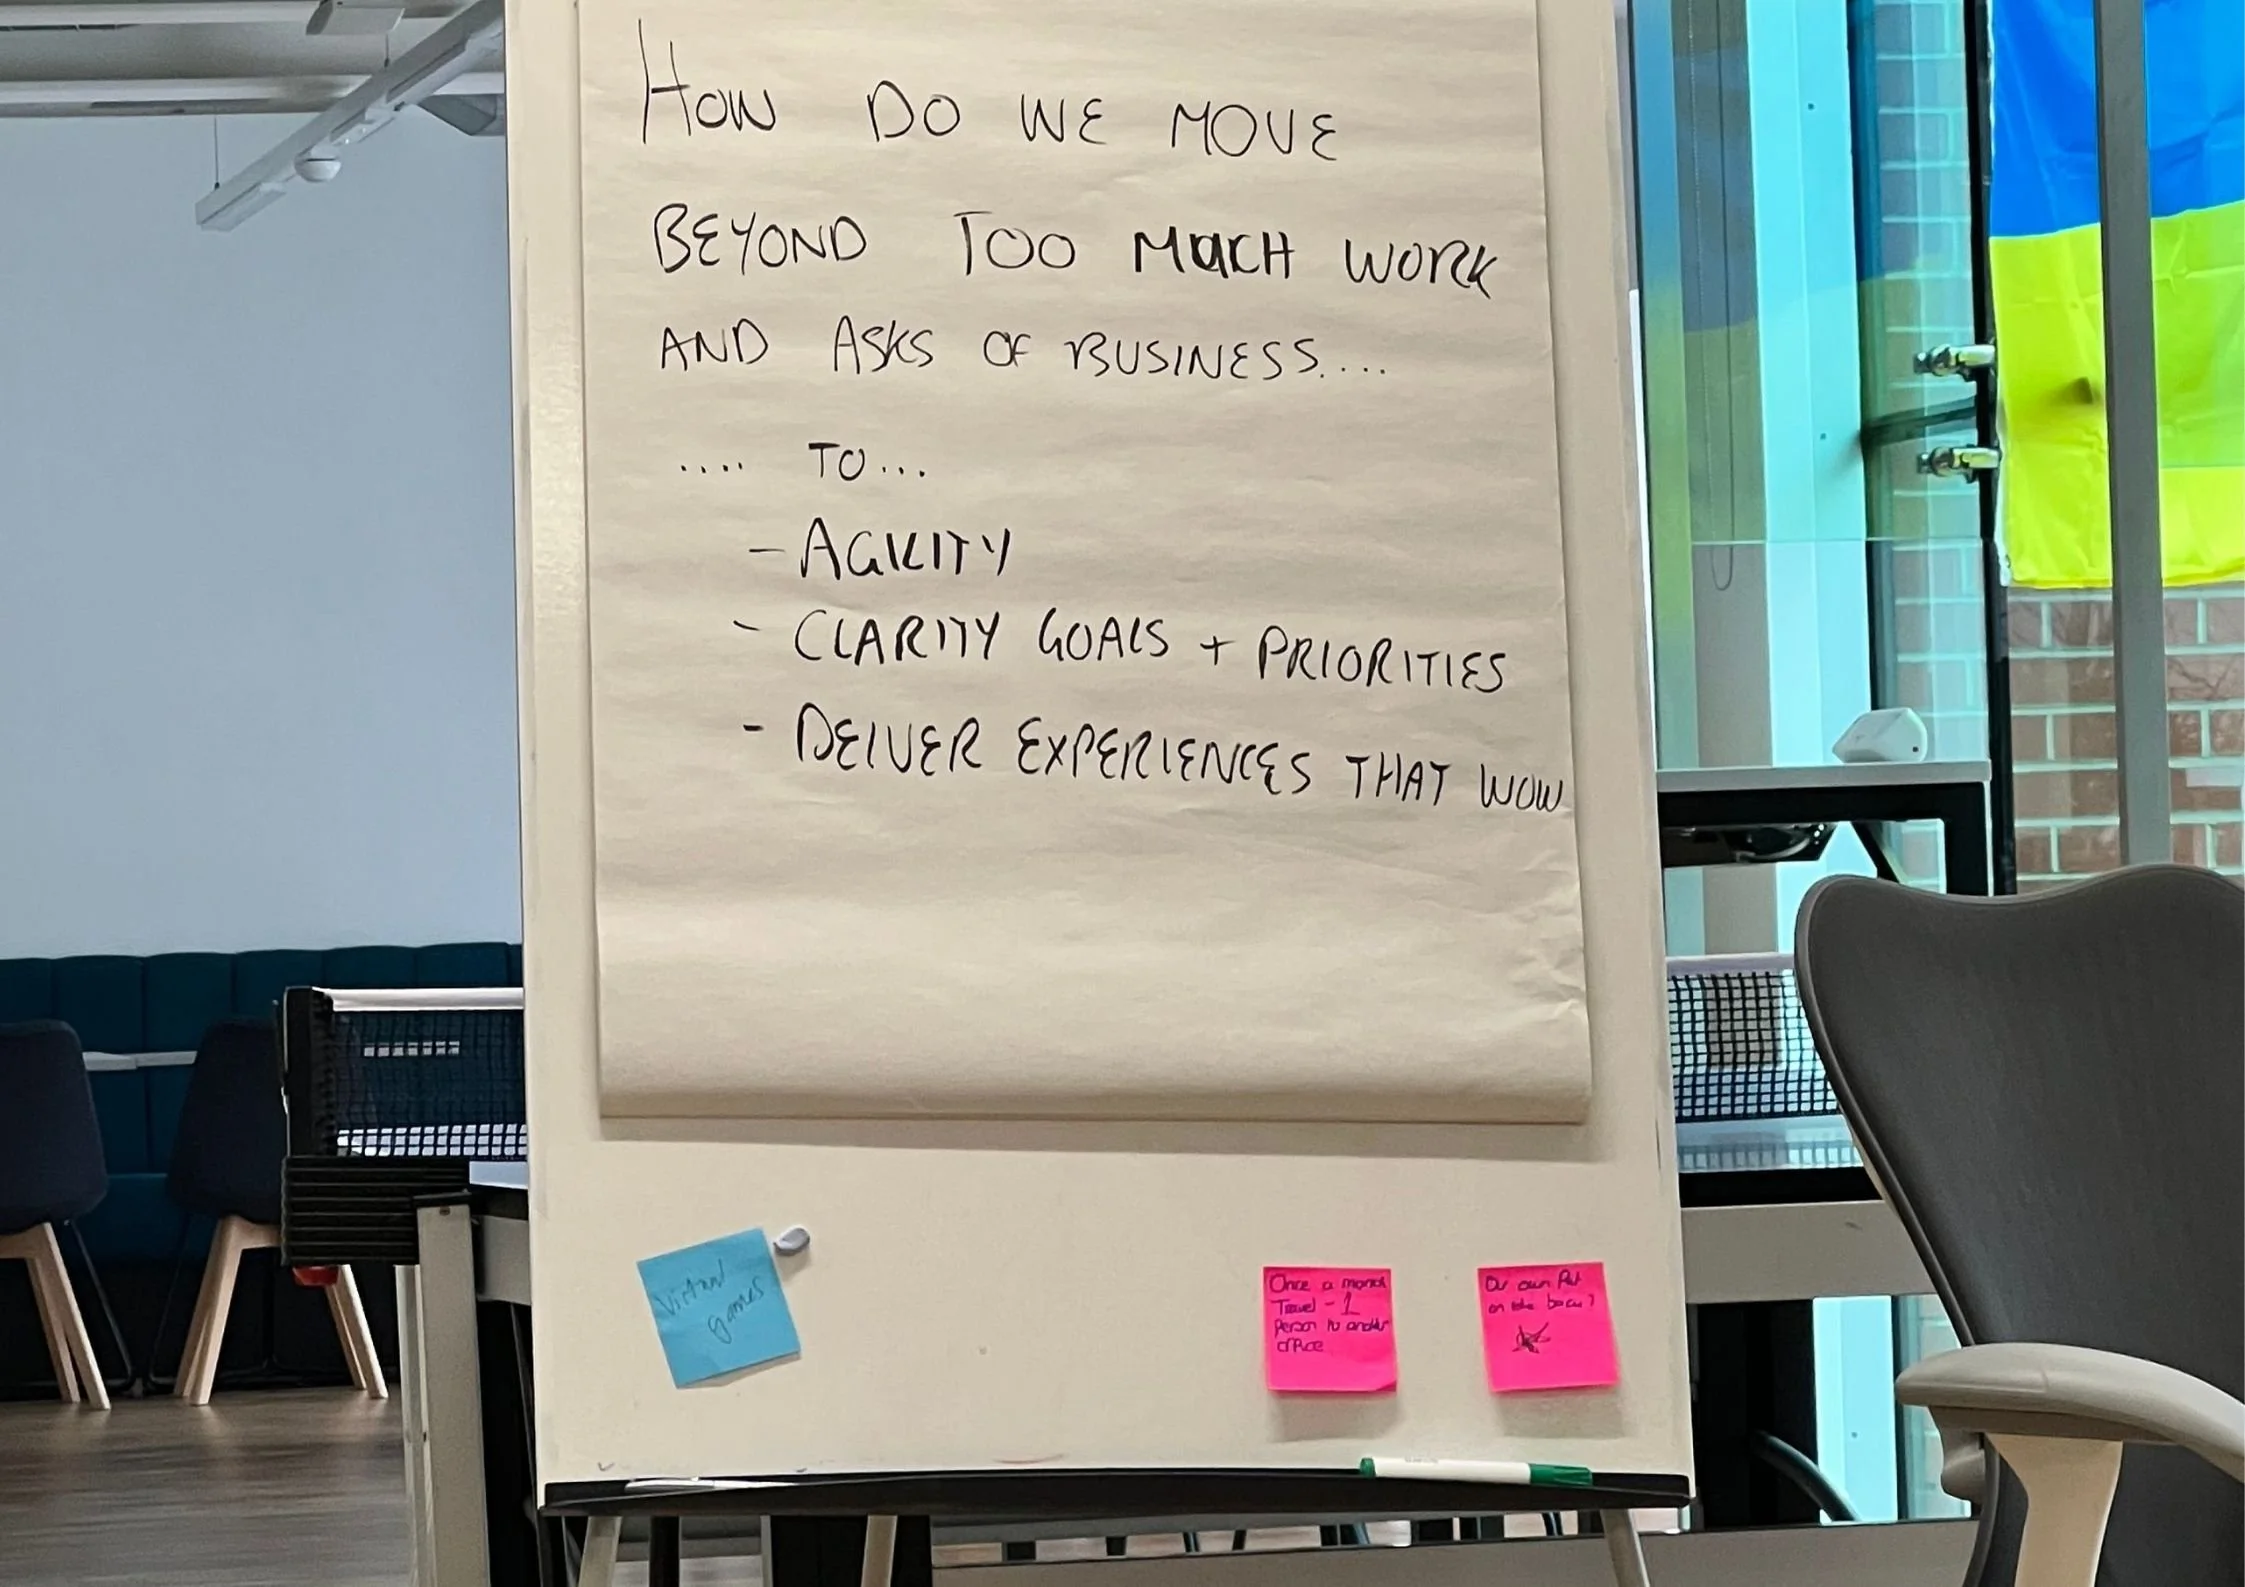 HOW DO WE MOVE
BEYOND TOO MUCH WORK
AND ASKS OF BUSINESS....
.... TO...
- AGILITY
- CLARITY GOALS + PRIORITIES
- DELIVER EXPERIENCES THAT WOW
Virtual
games
Once a month
Travel - 1
Person to another
office
Our own
on the